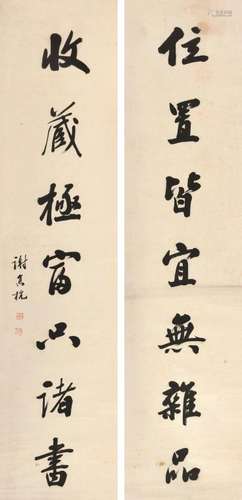 位置皆宜無雜品
收藏極富只諸書